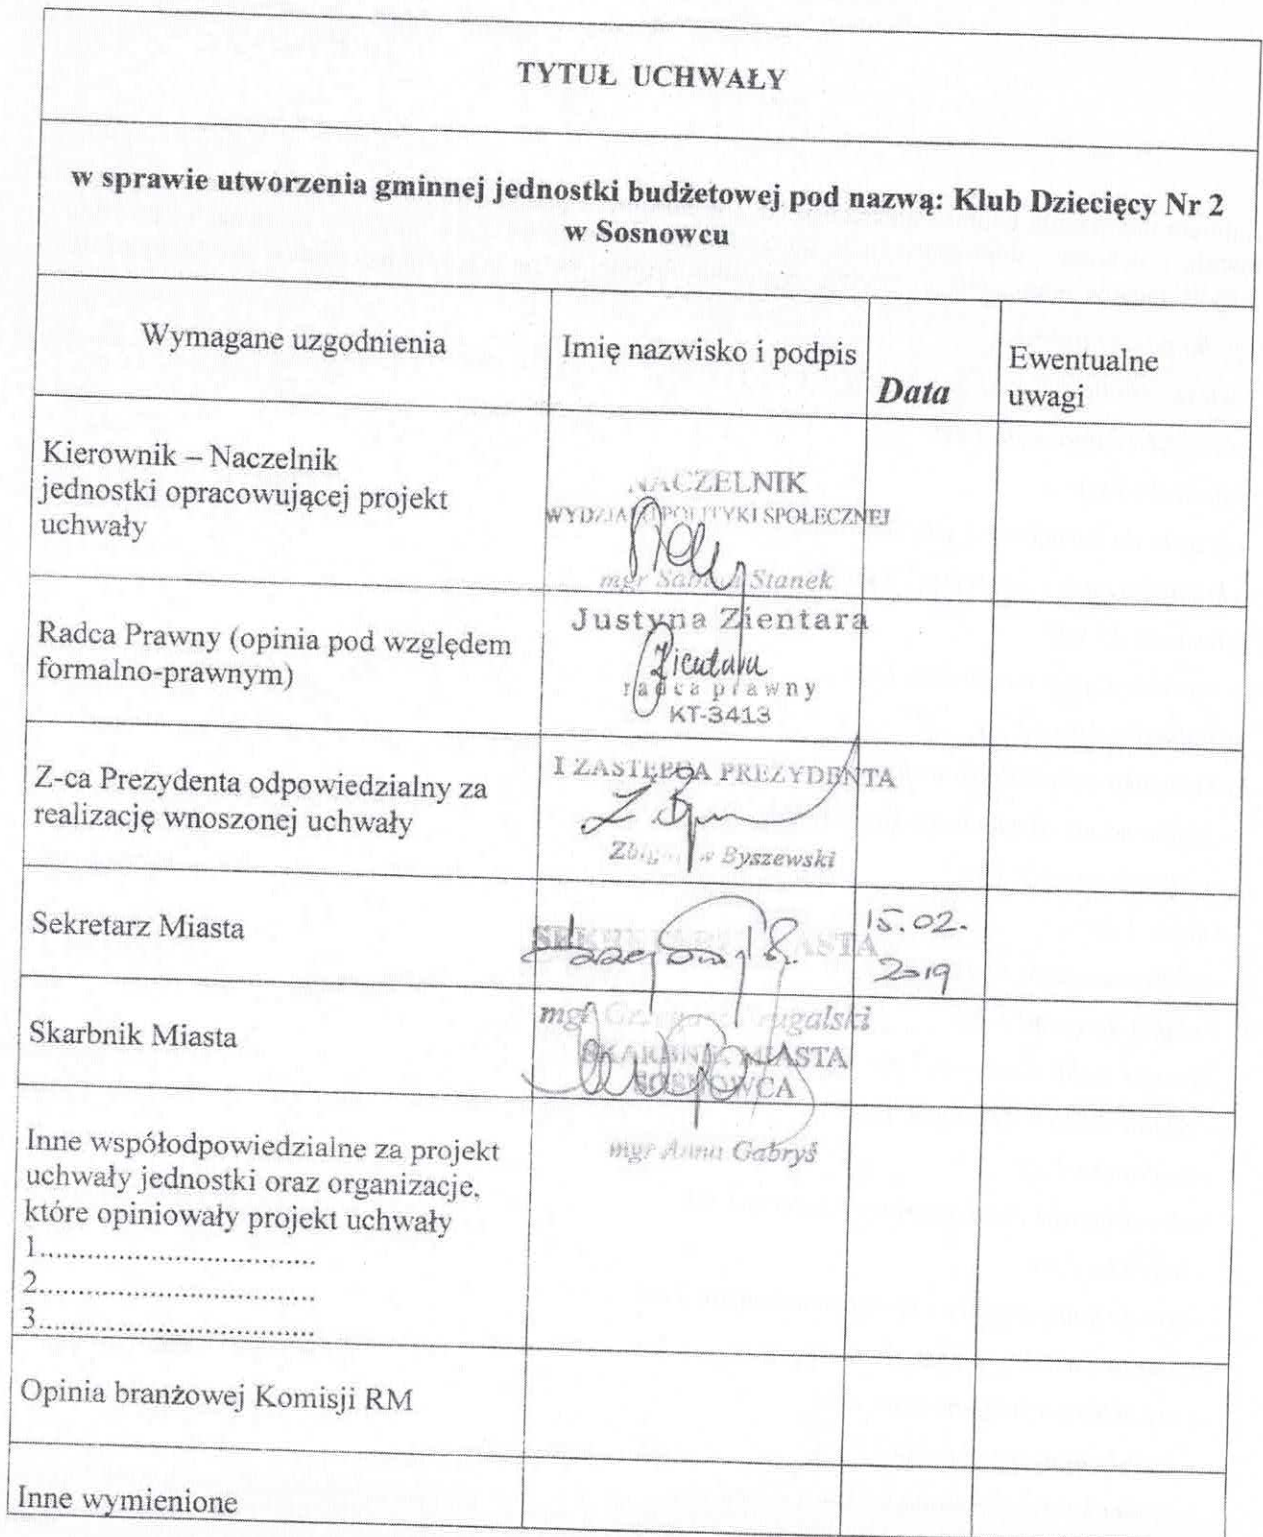 TYTUŁ UCHWAŁY
w sprawie utworzenia gminnej jednostki budżetowej pod nazwą: Klub Dziecięcy Nr 2
w Sosnowcu
Wymagane uzgodnienia
Imię nazwisko i podpis
Data
Ewentualne
uwagi
Kierownik – Naczelnik
jednostki opracowującej projekt
uchwały
NACZELNIK
WYDZIAŁU POLITYKI SPOŁECZNEJ
mgr Sabina Stanek
Radca Prawny (opinia pod względem
formalno-prawnym)
Justyna Zientara
Zientara
radca prawny
KT-3413
Z-ca Prezydenta odpowiedzialny za
realizację wnoszonej uchwały
I ZASTĘPCA PREZYDENTA
Zbigniew Byszewski
Sekretarz Miasta
SEKRETARZ MIASTA
15.02.
2019
Skarbnik Miasta
mgr
SKARBNIK MIASTA
SOSNOWCA
mgr Anna Gabryś
Inne współodpowiedzialne za projekt
uchwały jednostki oraz organizacje,
które opiniowały projekt uchwały
1...................................
2...................................
3...................................
Opinia branżowej Komisji RM
Inne wymienione